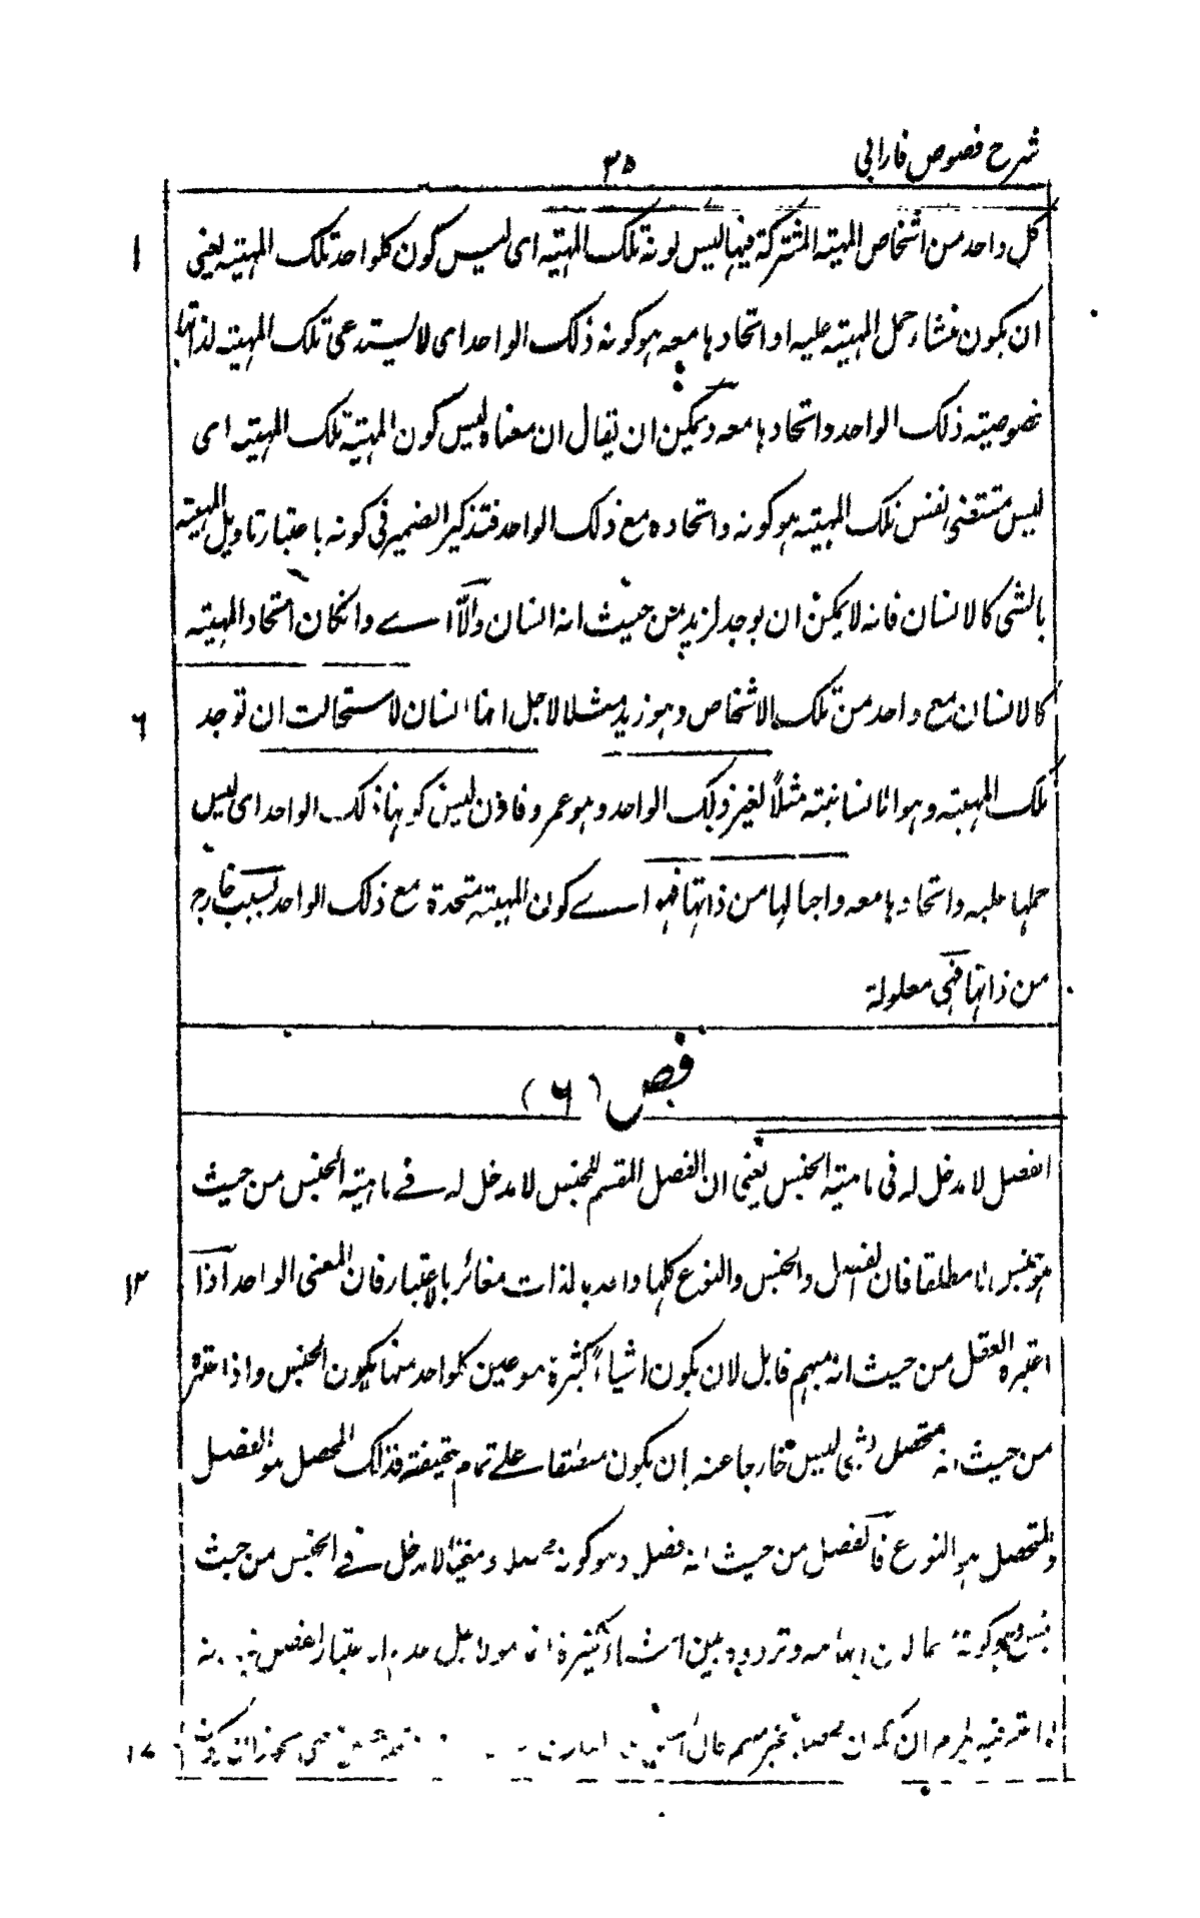 شرح فصوص فارابی
۳۵
۱
کل واحد من اشخاص المهیته المشترکة فیها لیس لونة تلک المهیته ای لیس کون کلواحد تلک المهیته یعنی
ان یکون منشاء حمل المهیته علیه او اتحادها معه هو کونه ذلک الواحد ای لا یستدعی تلک المهیته لذاتها
خصوصیته ذلک الواحد واتحادها معه ویمکن ان یقال ان معناه لیس کون المهیته تلک المهیته ای
لیس مقتضی نفس تلک المهیته هو کونه واتحاده مع ذلک الواحد فتذکیر الضمیر فی کونه باعتبار تاویل المهیته
بالشی کالانسان فانه لا یمکن ان یوجد لزید من حیث انه انسان والا اے وان کان اتحاد المهیته
۶
کالانسان مع واحد من تلک الاشخاص وهو زید مثلا لاجل انها انسان لاستحالت ان توجد
تلک المهیته وهو الانسانیته مثلاً لغیر ذلک الواحد وهو عمرو فاذن لیس کونها ذلک الواحد ای لیس
حملها علیه واتحادها معه واجبا لها من ذاتها فهو اے کون المهیته متحدة مع ذلک الواحد بسبب خارج
من ذاتها فهی معلولة
فص (۶)
الفصل لا مدخل له فی ماهیته الجنس یعنی ان الفصل المقسم للجنس لا مدخل له فے ماهیته الجنس من حیث
۱۲
هو جنس لا مطلقا فان الفصل والجنس والنوع کلها واحد بالذات مغائر بالاعتبار فان المعنی الواحد اذا
اعتبره العقل من حیث انه مبهم قابل لان یکون اشیاءً کثیرة هو عین کلواحد منها یکون الجنس واذا اعتبر
من حیث انه متحصل بشی لیس خارجا عنه بان یکون منطبقا علے تمام حقیقته فذلک المحصل هو الفصل
والمتحصل هو النوع فالفصل من حیث انه فصل وهو کونه محصلا ومعینا لا مدخل فے الجنس من حیث
جنس وهو کونه وتردده بین اشیاء کثیرة اعتبار الفصل
۱۷